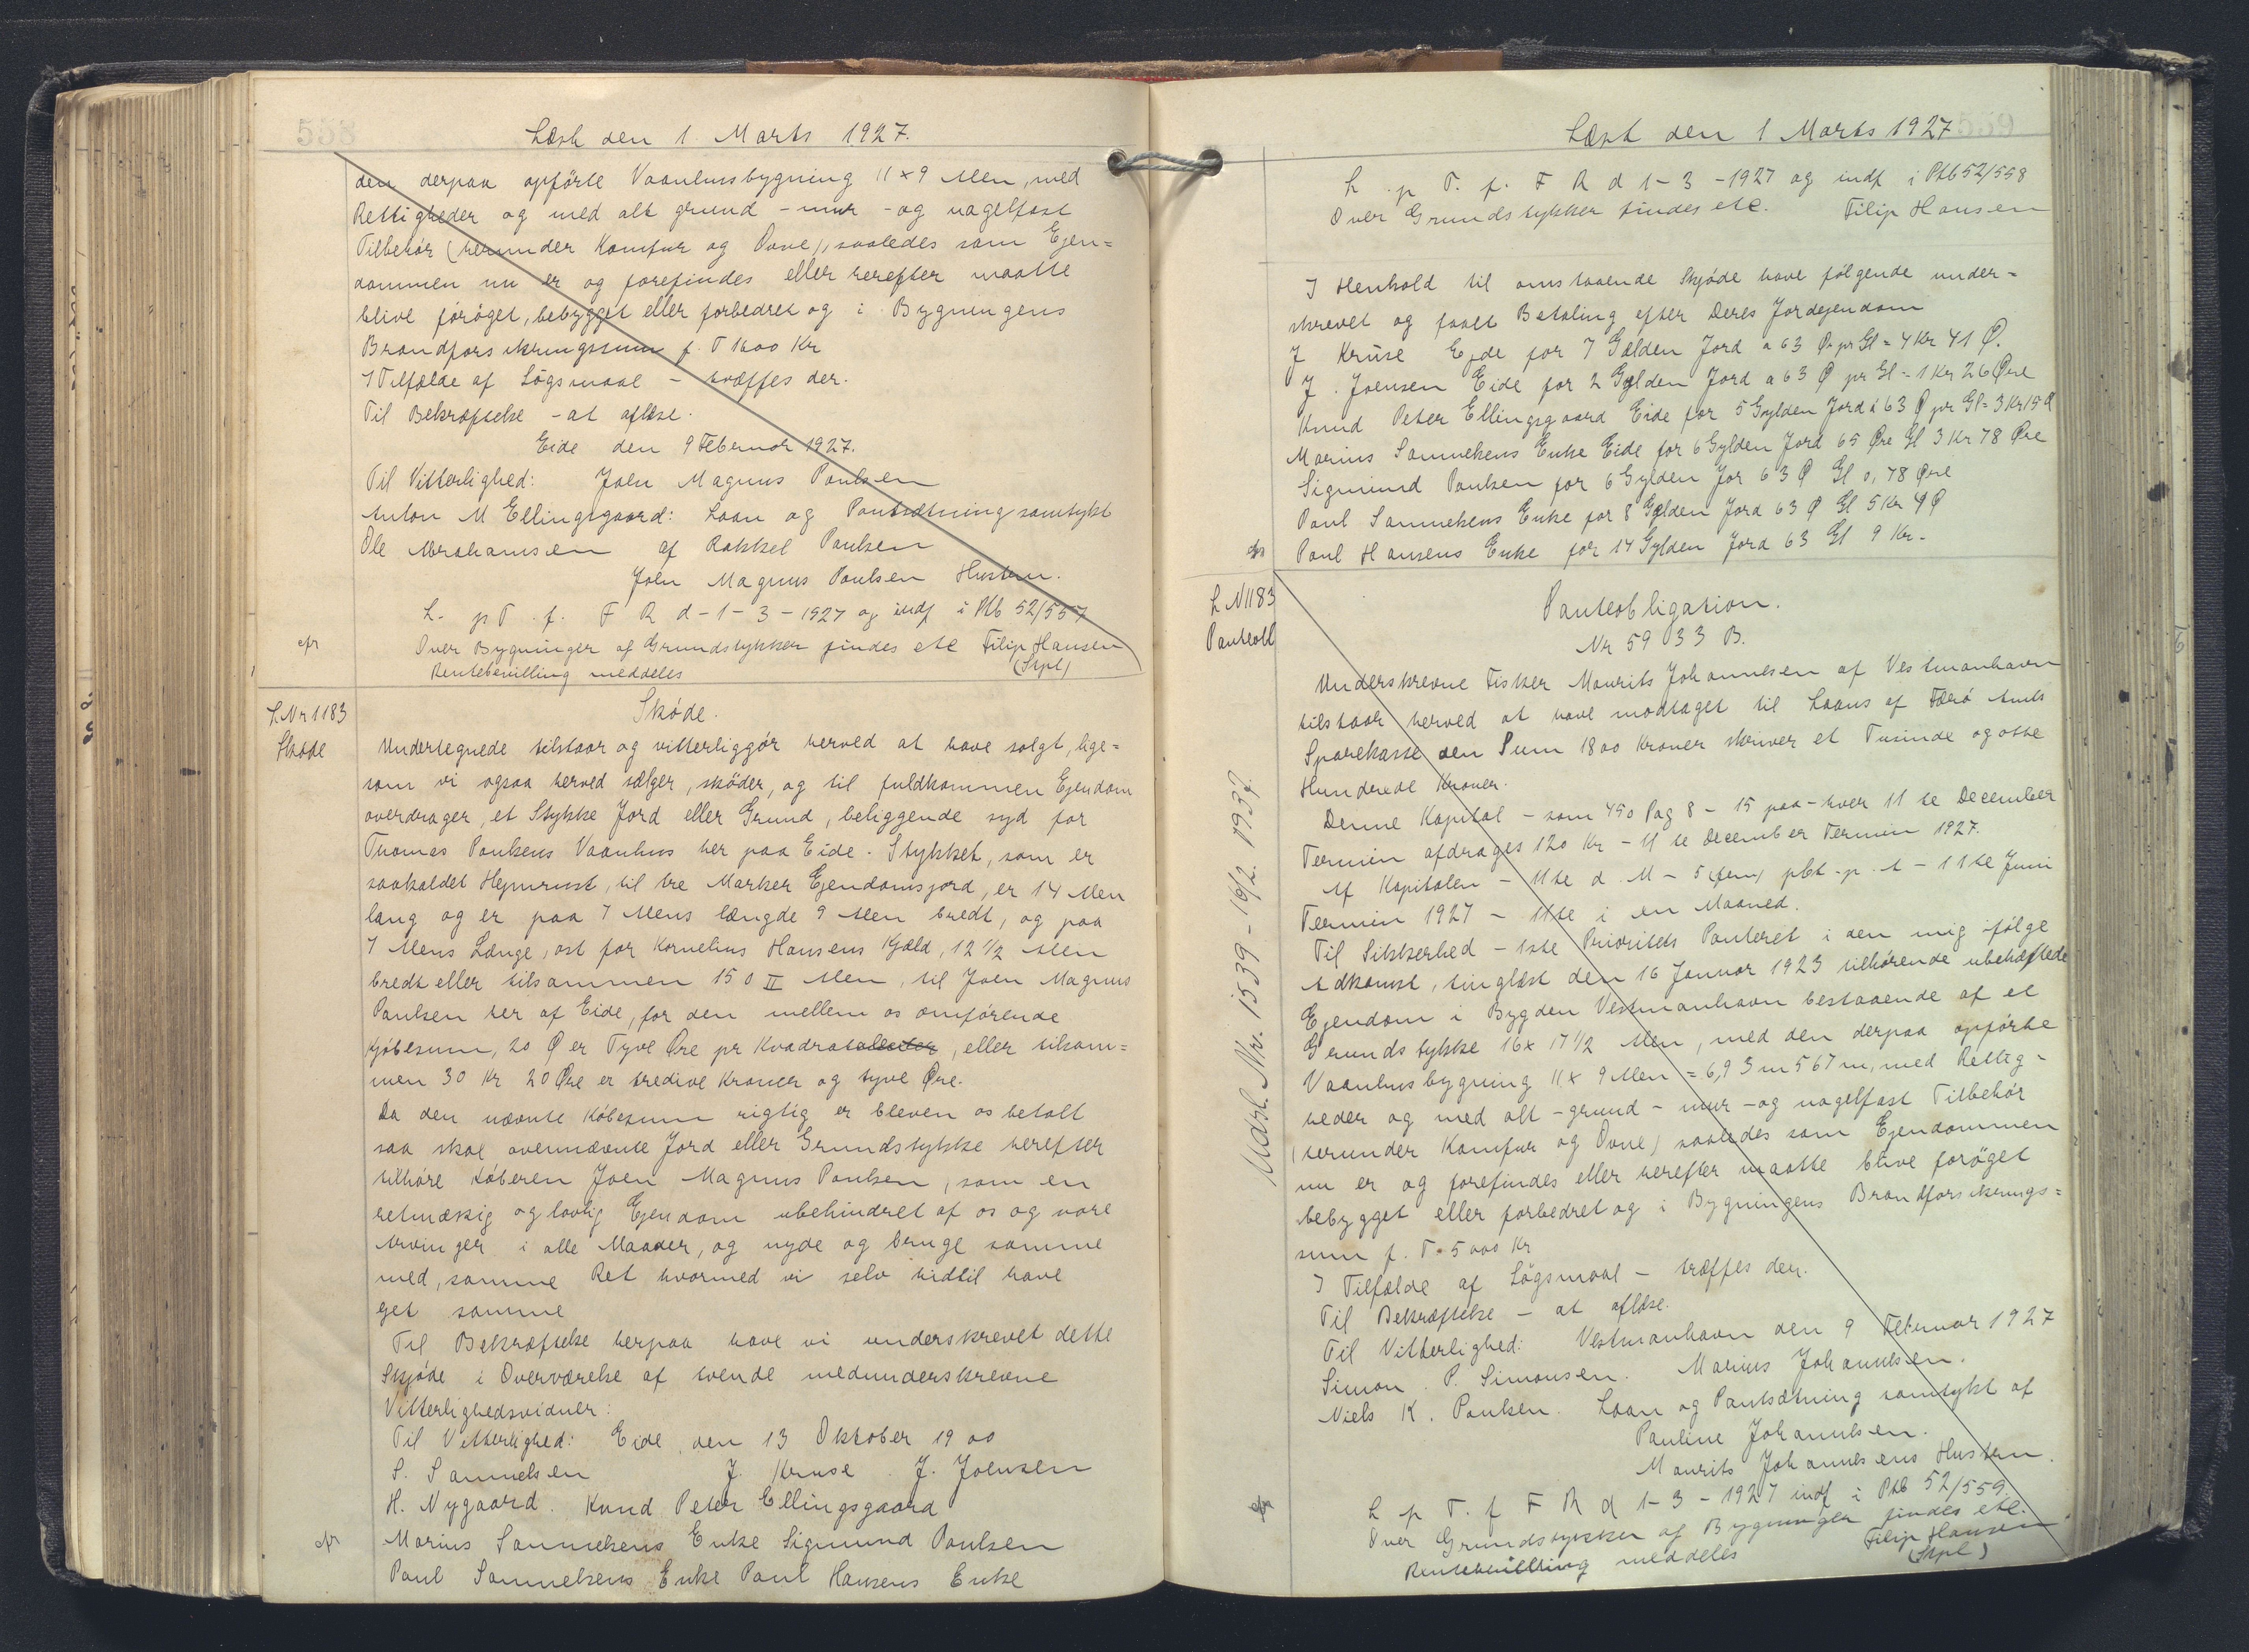 558
Læst den 1. Marts 1927.
den derpaa opførte Vaanhusbygning 11 x 9 Alen, med
Rettigheder og med alt grund - mur - og nagelfast
Tilbehör (herunder Komfur og Ovne), saaledes som Ejen=
dommen nu er og forefindes eller herefter maatte
blive foröget, bebygget eller forbedret og i Bygningens
Brandforsikringssum f. T 1600 Kr
I Tilfælde af Lögsmaal - træffes der.
Til Bekræftelse - at aflæse.
Eide den 9 Februar 1927.
Til Vitterlighed: Joen Magnus Poulsen
Anton M Ellingsgaard: Laan og Pantsætning samtykt
Ole Abrahamsen af Rakkel Poulsen
Joen Magnus Poulsen Hustru.
L. p T. f. F R d - 1 - 3 - 1927 og indf i Ptb 52/557
Over Bygninger af Grundstykker findes etc Filip Hansen
Rentebevilling meddeles (Stpl)
L Nr 1183
Skøde
Skøde.
Undertegnede tilstaar og vitterliggör herved at have solgt, lige=
som vi ogsaa herved sælger, sköder, og til fuldkommen Ejendom
overdrager, et Stykke Jord eller Grund, beliggende syd for
Thomas Poulsens Vaanhus her paa Eide. Stykket, som er
saakaldet Hejmrust, til tre Marker Ejendomsjord, er 14 Alen
lang og er paa 7 Alens længde 9 Alen bredt, og paa
7 Alens Længe, ost for Kornelius Hansens Kjæld, 12 1/2 Alen
bredt eller tilsammen 150 II Alen, til Joen Magnus
Poulsen her af Eide, for den mellem os omförende
Kjöbesum, 20 Ø er Tyve Øre pr Kvadratalenter, eller tilsam=
men 30 Kr 20 Øre er tredive Kroner og tyve Øre.
Da den nævnte Købesum rigtig er bleven os betalt
saa skal ovennævnte Jord eller Grundstykke herefter
tilhöre Köberen Joen Magnus Poulsen, som en
retmæssig og lovlig Ejendom ubehindret af os og vore
Arvinger i alle Maader, og nyde og bruge samme
med, samme Ret hvormed vi selv hidtil have
get samme
Til Bekræftelse herpaa have vi underskrevet dette
Skjøde i Overværelse af tvende medunderskrevne
Vitterlighedsvidner:
Til Vitterlighed: Eide, den 13 Oktober 1900
S. Samuelsen J. Kruse. J. Joensen
H. Nygaard. Knud Peter Ellingsgaard
Marius Samuelsens Enke Sigmund Poulsen
Poul Samuelsens Enke Poul Hansens Enke
559
Læst den 1 Marts 1927
L. p T. f. F R d 1 - 3 - 1927 og indf i Ptb 52/558
Over Grundstykker findes etc. Filip Hansen
I Henhold til omstaaende Skjøde have følgende under=
skrevet og faaet Betaling efter Deres Jordejendom
J Kruse Ejde for 7 Gælden Jord a 63 Ø. pr Gl = 4 Kr 41 Ø.
J. Joensen Eide for 2 Gylden Jord a 63 Ø pr Gl = 1 Kr 26 Øre
Knud Peter Ellingsgaard Eide for 5 Gylden Jord á 63 Ø pr Gl = 3 Kr 15 Ø
Marius Samuelsens Enke Eide for 6 Gylden Jord 65 Øre Gl 3 Kr 78 Øre
Sigmund Poulsen for 6 Gylden Jor 63 Ø Gl 0,78 Øre
Poul Samuelsens Enke for 8 Gylden Jord 63 Ø Gl 5 Kr 4 Ø
Poul Hansens Enke for 14 Gylden Jord 63 Gl 9 Kr -
L N 1183
Panteobl
Panteobligation.
Nr 5933 B.
Underskrevne Fisker Maurits Johannesen af Vestmanhavn
tilstaar herved at have modtaget til Laans af Færø Amts
Sparekasse den Sum 1800 Kroner skriver et Tusinde og otte
Hundrede Kroner.
Denne Kapital - som 450 Pag 8 - 15 paa - hver 11 te December
Termin afdrages 120 Kr - 11 te December Termin 1927.
Af Kapitalen - 11te d. M - 5 (fem) pCt. p. A - 11te Juni
Termin 1927 - 11te i en Maaned.
Til Sikkerhed - 1ste Prioritets Panteret i den mig ifølge
Adkomst, tinglæst den 16 Januar 1923 tilhørende ubehæftede
Ejendom i Bygden Vestmanhavn bestaaende af et
Grundstykke 16 x 17 1/2 Alen, med den derpaa opførte
Vaanhusbygning 11 x 9 Alen = 6,93 m 5 67 m, med Rettig-
heder og med alt - grund - mur - og nagelfast Tilbehör
(herunder Komfur og Ovne) saaledes som Ejendommen
nu er og forefindes eller herefter maatte blive foröget
bebygget eller forbedret og i Bygningens Brandforsikrings=
sum f. T. 5000 Kr
I Tilfælde af Lögsmaal - træffes der.
Til Bekræftelse - at aflæse.
Til Vitterlighed: Vestmanhavn den 9 Februar 1927
Simon. P. Simonsen. Marius Johannesen.
Niels K. Poulsen. Laan og Pantsætning samtykt af
Pauline Johannesen.
Maurits Johannesens Hustru.
L p T. f F R d 1 - 3 - 1927 indf i Ptb 52/559.
Over Grundstykker af Bygninger findes etc.
Rentebevilling meddeles Filip Hansen
(Stpl)
Udsl. Nr. 1539 - 16/2. 1937.